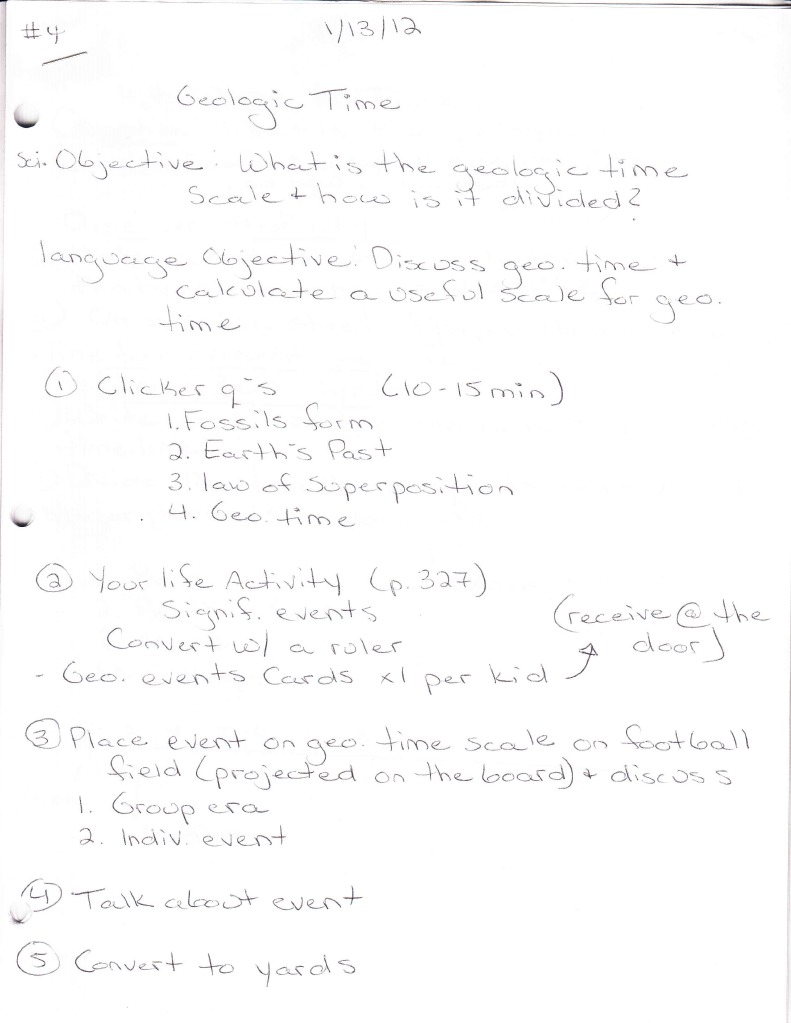 #4 1/13/12
Geologic Time
Sci. Objective: What is the geologic time
Scale + how is it divided?
language Objective: Discuss geo. time +
calculate a useful scale for geo.
time
① Clicker q's (10-15 min)
1. Fossils form
2. Earth's Past
3. law of Superposition
4. Geo. time
② Your life Activity (p. 327)
Signif. events
Convert w/ a ruler
(receive @ the
door)
- Geo. events Cards x1 per kid
③ Place event on geo. time scale on football
field (projected on the board) + discuss
1. Group era
2. Indiv. event
④ Talk about event
⑤ Convert to yards